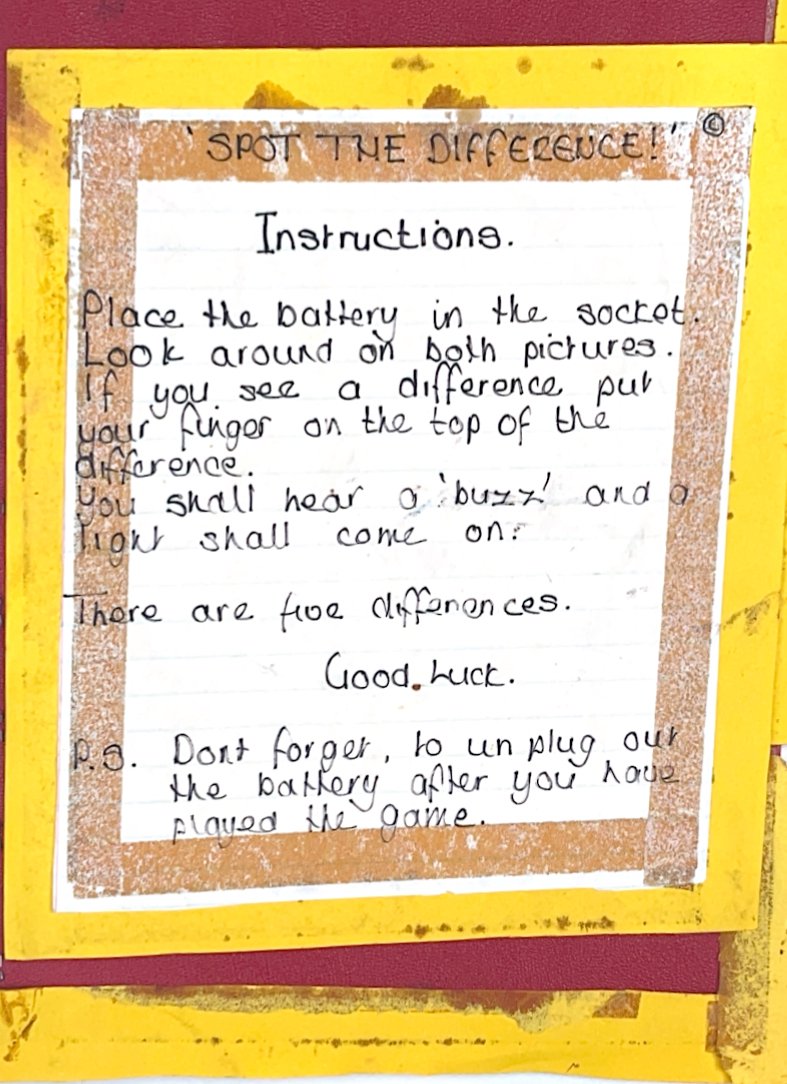 'SPOT THE DIFFERENCE!' ©
Instructions.
Place the battery in the socket.
Look around on both pictures.
If you see a difference put
your finger on the top of the
difference.
you shall hear a 'buzz!' and a
light shall come on.
There are five differences.
Good. Luck.
P.S. Dont forget, to un plug out
the battery after you have
played the game.